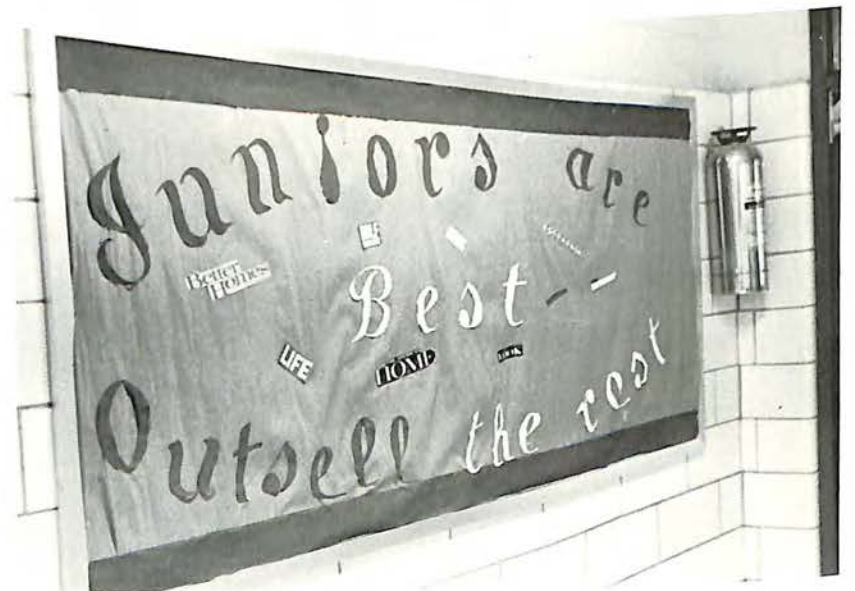 Juniors are
Better
Homes
Best--
LIFE
HOME
LOOK
Outsell the rest